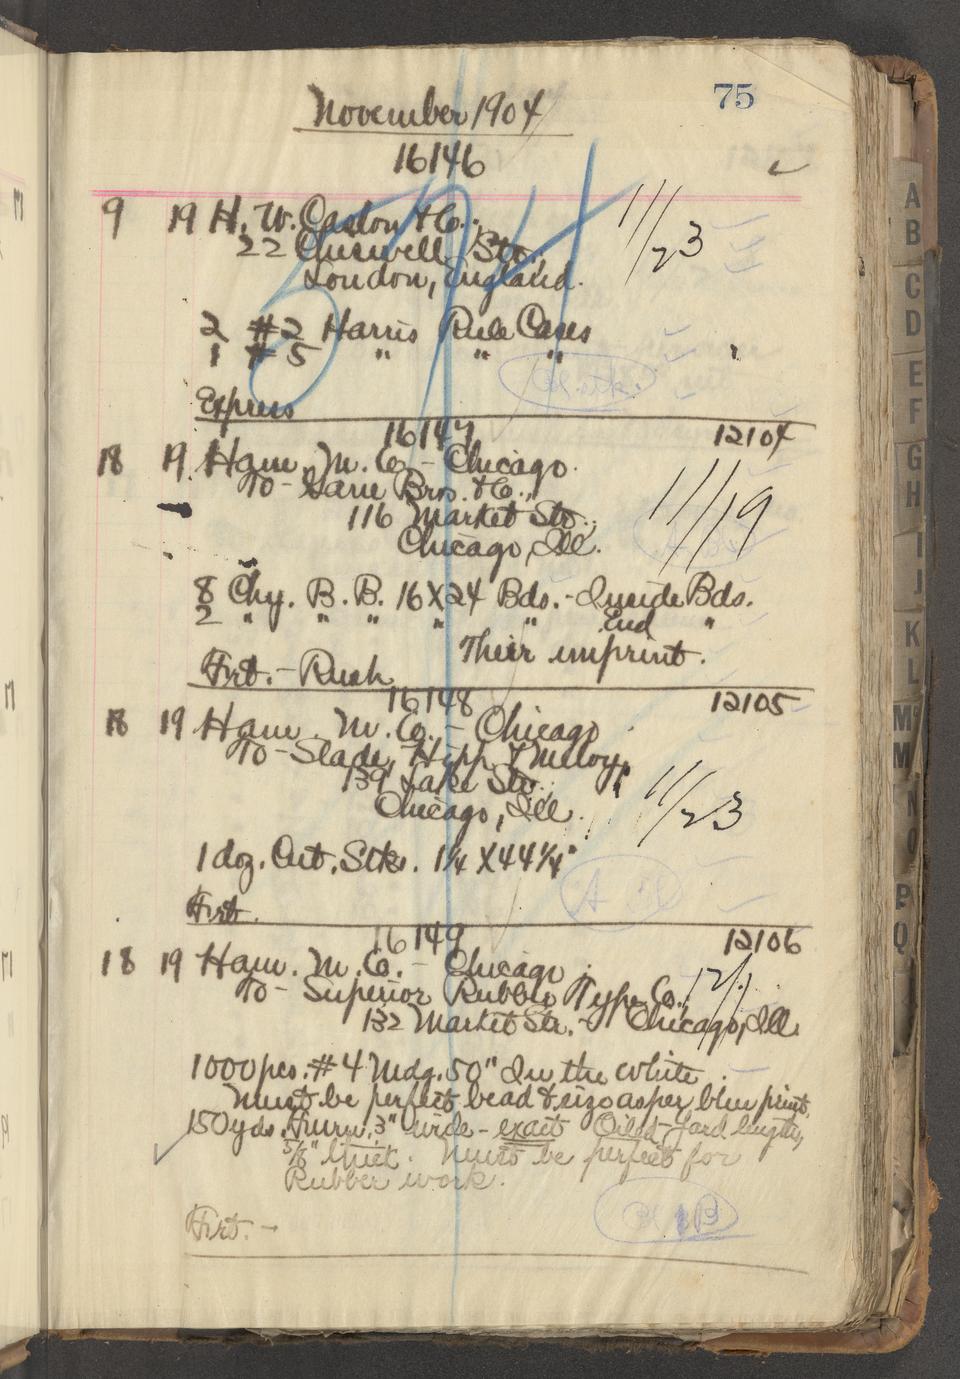 75
November 1904
16146
9 19 H. W. Caslon & Co.,
22 Chiswell Str.,
London, England.
11/23
2 #2 Harris Rule Cases
1 #5 " " "
Express
16147 12104
18 19 Ham. M. Co. - Chicago.
To - Garie Bros. & Co.,
116 Market Str.,
Chicago, Ill.
11/19
8 Chy. B. B. 16 X 24 Bds. - Inside Bds.
2 " " " " " End "
Their imprint.
Frt. - Rush
16148 12105
18 19 Ham. M. Co. - Chicago
To - Slade, Hipp & Meloy,
139 Lake Str.,
Chicago, Ill.
11/23
1 doz. Cut. Stks. 1 1/4 X 44 1/4"
Frt.
16149 12106
18 19 Ham. M. Co. - Chicago
To - Superior Rubber Type Co., 12/1
132 Market Str. - Chicago, Ill.
1000 pcs. #4 Mdg. 50" In the white
Must be perfect bead & size as per blue print.
150 yds. Furn. 3" wide - exact Oiled - yard lengths,
5/8" thick. Must be perfect for
Rubber work.
Frt. -
A
B
C
D
E
F
G
H
I
J
K
L
M
N
O
P
Q